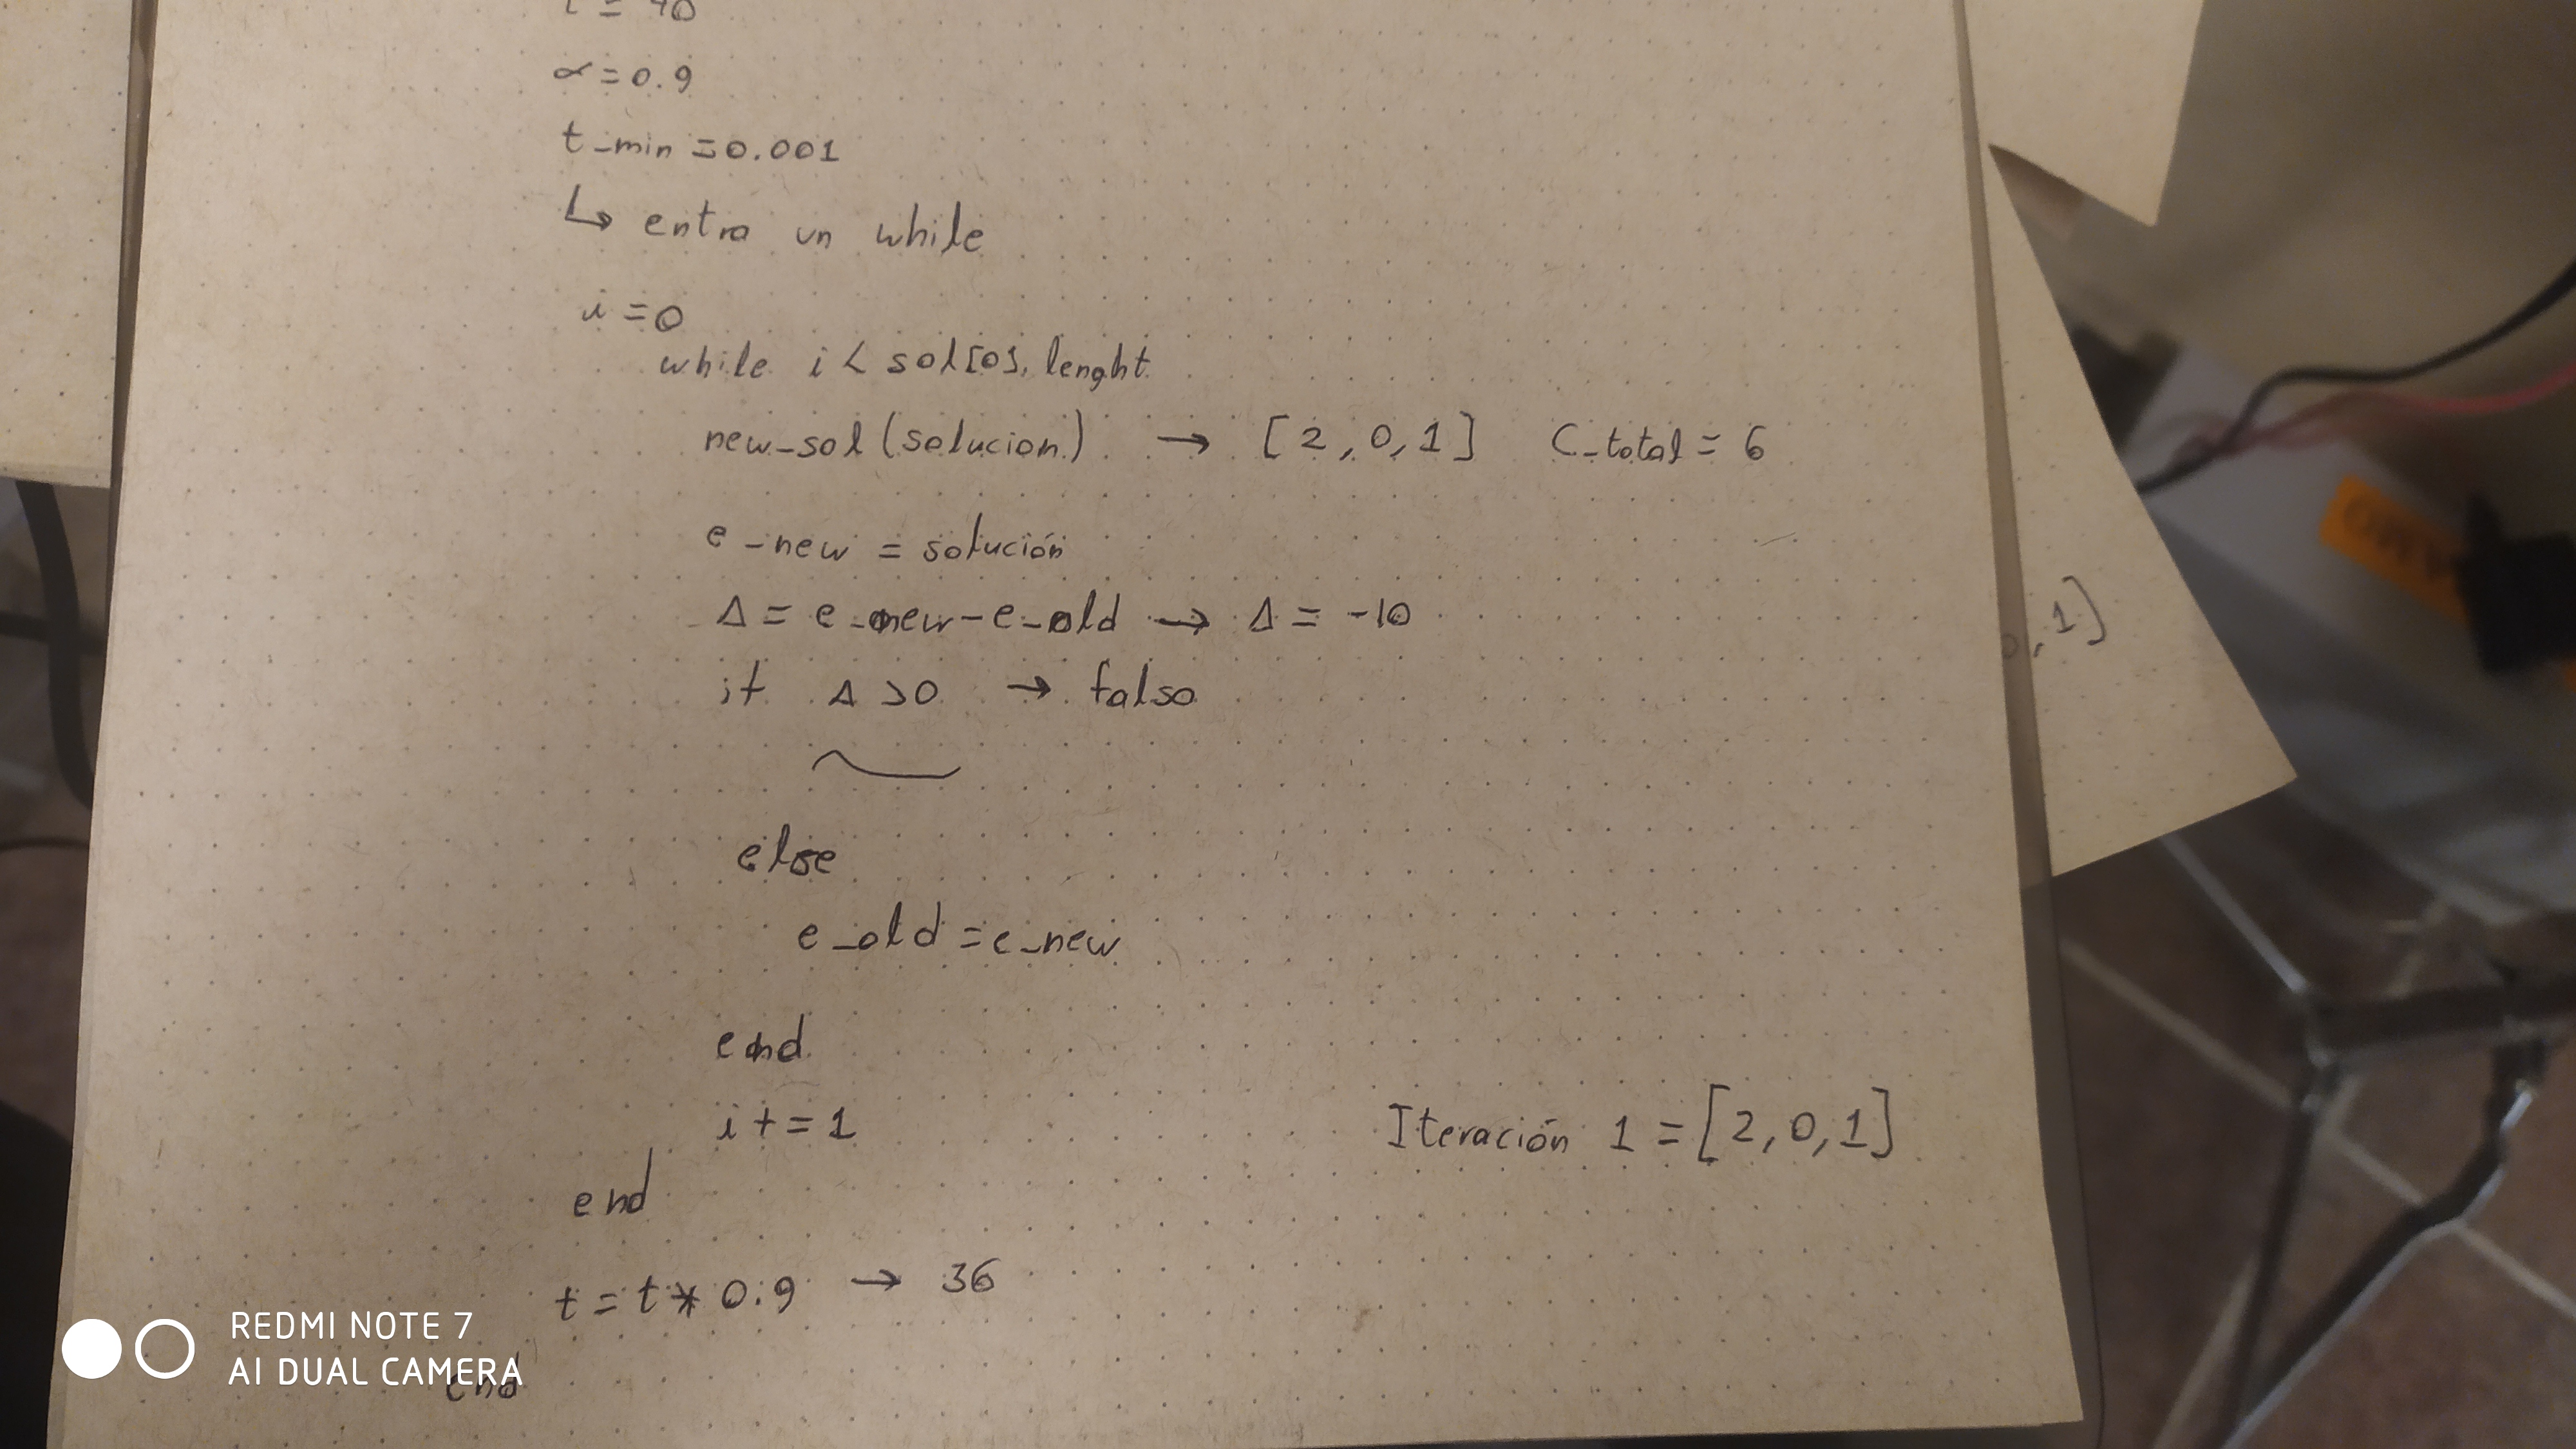 t = 40
α = 0.9
t_min = 0.001
↳ entra un while
i = 0
while i < sol[0].lenght
new_sol(solucion) → [2,0,1] C_total = 6
e_new = solución
Δ = e_new - e_old → Δ = -10
if Δ > 0 → falso
else
e_old = e_new
end
i += 1
Iteración 1 = [2,0,1]
end
t = t * 0.9 → 36
end
0,1]
REDMI NOTE 7
AI DUAL CAMERA